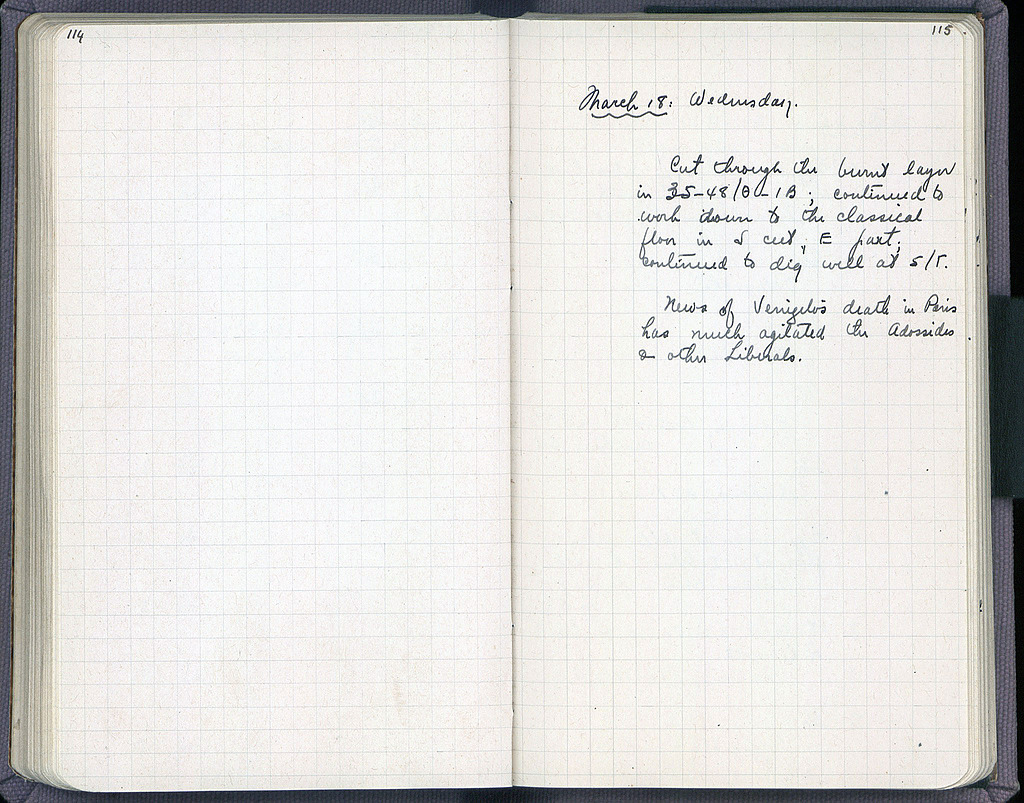 114
115
March 18: Wednesday.
Cut through the burnt layer
in 35-48/Θ-ΙΒ; continued to
work down to the classical
floor in S cut, E part;
continued to dig well at 5/Γ.
News of Venizelos death in Paris
has much agitated the Adossides
& other Liberals.